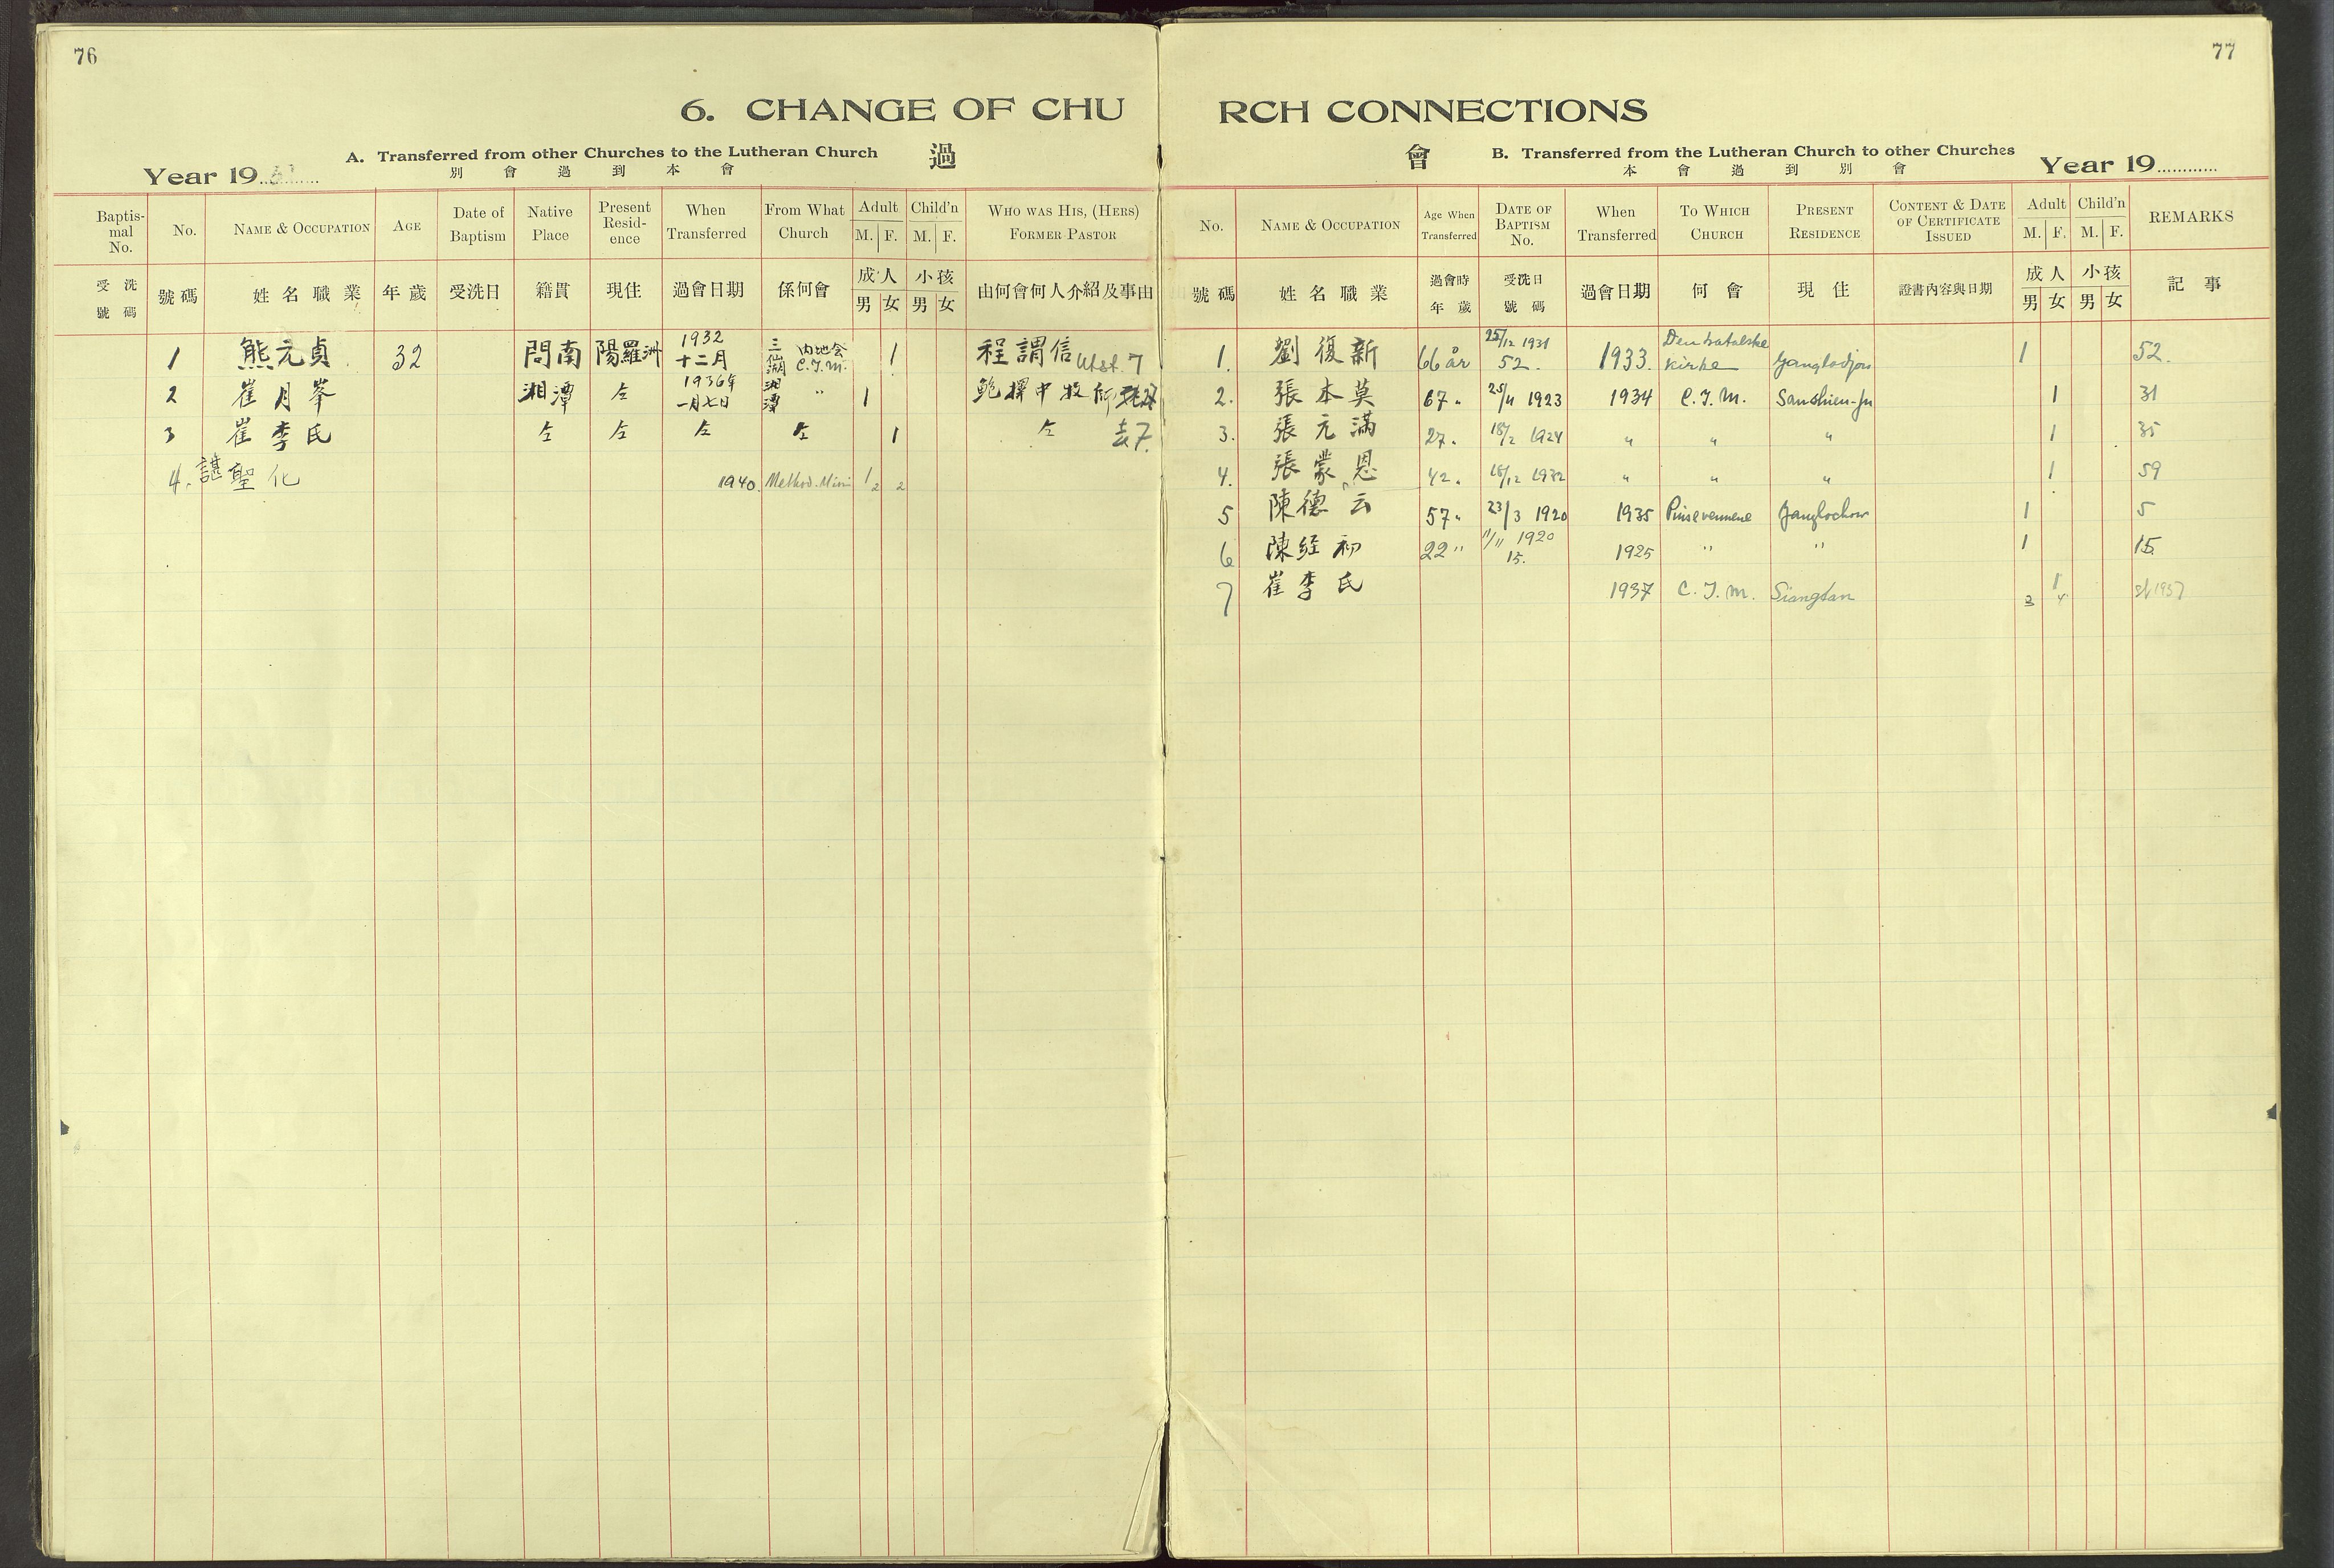 76
6. CHANGE OF CHU
A. Transferred from other Churches to the Lutheran Church 過
別會過到本會
Year 19
Baptismal No. No. NAME & OCCUPATION AGE Date of Baptism Native Place Present Residence When Transferred From What Church Adult M. F. Child'n M. F. WHO WAS HIS, (HERS) FORMER PASTOR
受洗號碼 號碼 姓名職業 年歲 受洗日 籍貫 現住 過會日期 係何會 成人 男 女 小孩 男 女 由何會何人介紹及事由
1 熊元貞 32 問南 陽羅洲 1932 十二月 三仙湖 內地会 C.I.M. 1 程謂信 Utst. 7
2 崔月岑 湘潭 仝 1936年 一月七日 湘潭 " 1 鮑擇中牧師
3 崔李氏 仝 仝 仝 仝 1 仝 去7.
4. 諶聖化 1940. Method. Misi 1 2 2
77
RCH CONNECTIONS
會 B. Transferred from the Lutheran Church to other Churches
本會過到別會
Year 19
No. NAME & OCCUPATION Age When Transferred DATE OF BAPTISM No. When Transferred TO WHICH CHURCH PRESENT RESIDENCE CONTENT & DATE OF CERTIFICATE ISSUED Adult M. F. Child'n M. F. REMARKS
號碼 姓名職業 過會時年歲 受洗日號碼 過會日期 何會 現住 證書內容與日期 成人 男 女 小孩 男 女 記事
1. 劉復新 66 år 25/12 1931 52. 1933. Den katolske kirke Yanglodjou 1 52.
2. 張本莫 67 " 25/11 1923 1934 C.I.M. Sanshien-fu 1 31
3. 張元滿 27. 18/2 1924 " " " 1 35
4. 張蒙恩 42. 18/12 1932 " " " 1 59
5 陳德云 57 " 23/3 1920 1935 Pinsevennene Yanglochow 1 5
6 陳經初 22 " 11/11 1920 15. 1925 " " 1 15.
7 崔李氏 1937 C.I.M. Siangtan 1 3 4 1937